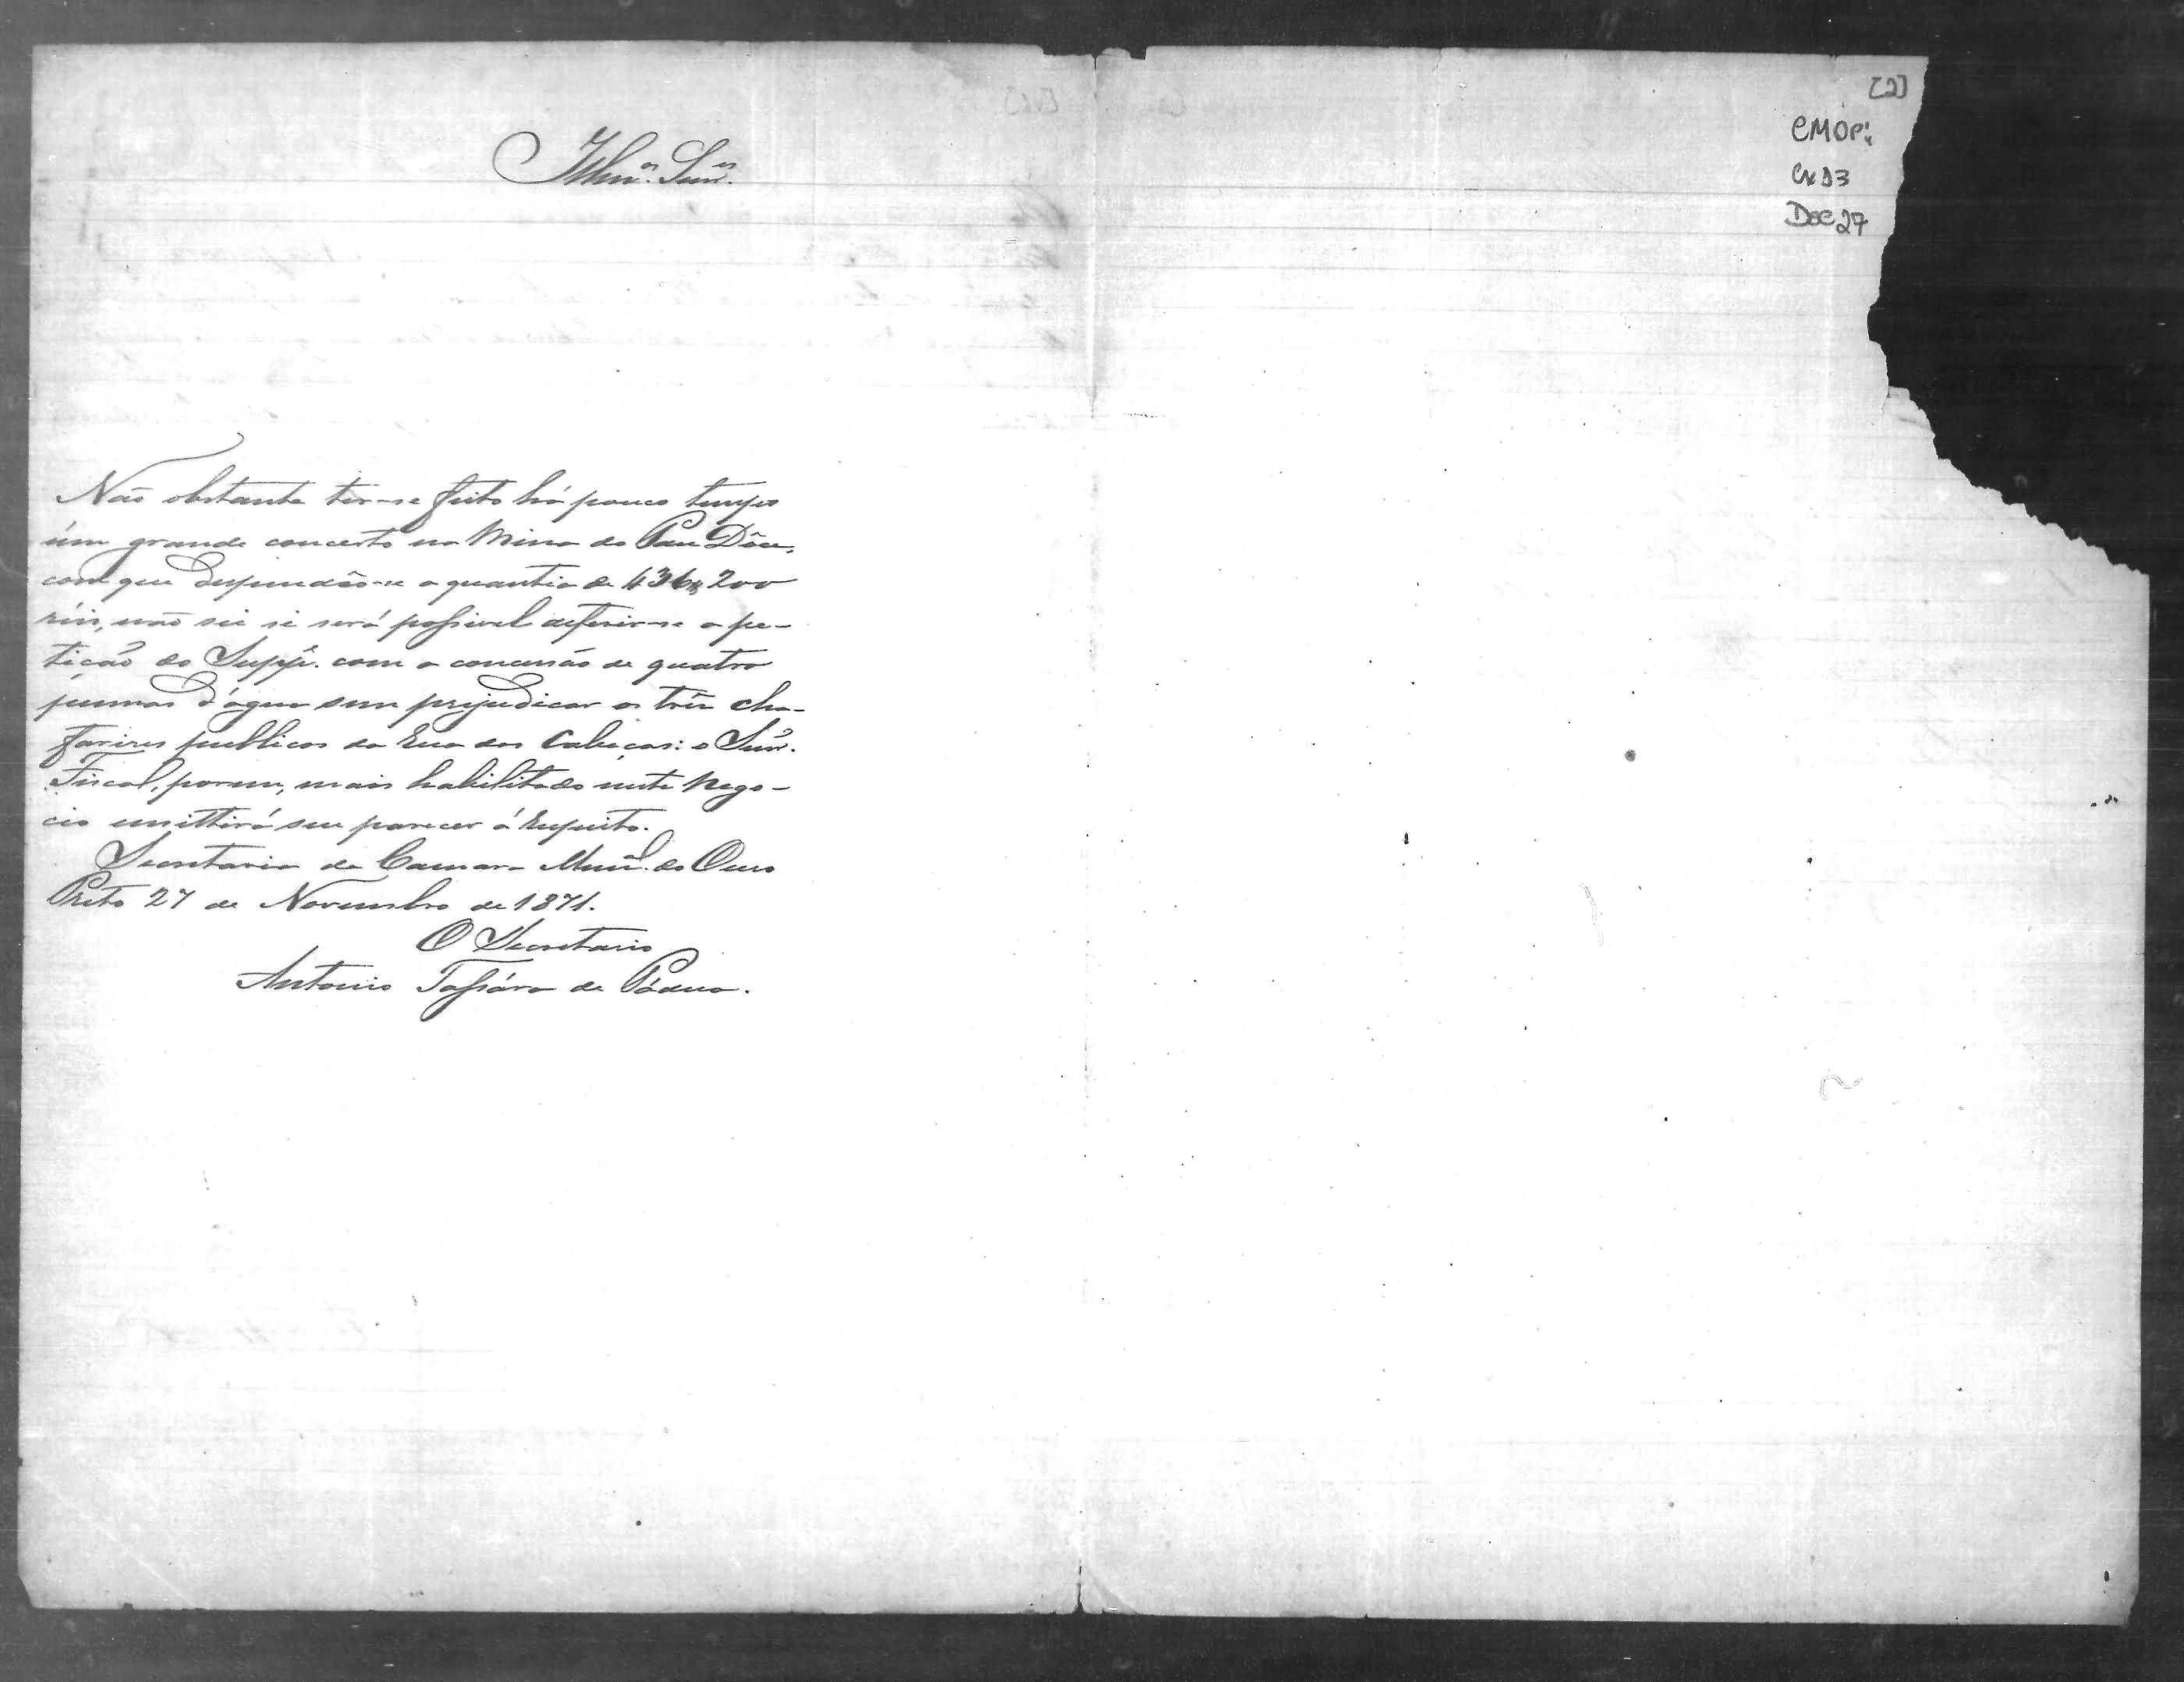 [2]
CMOP:
Cx 13
Doc 27
Illmos. Snres.
Não obstante ter-se feito há pouco tempo
úm grande concerto na Mina do Pau Dôce,
com que despendêo-se a quantia de 436$200
réis, não sei si será possivel deferir-se a pe-
tição do Suppe. com a concessão de quatro
pennas d'água sem prejudicar os três cha-
farizes publicos da Rua das Cabeças: o Snr.
Fiscal, porem, mais habilitado neste nego-
cio emittirá seu parecer á respeito.
Secretaria da Camara Munal. do Ouro
Preto 27 de Novembro de 1871.
O Secretario
Antonio Tassára de Pádua.